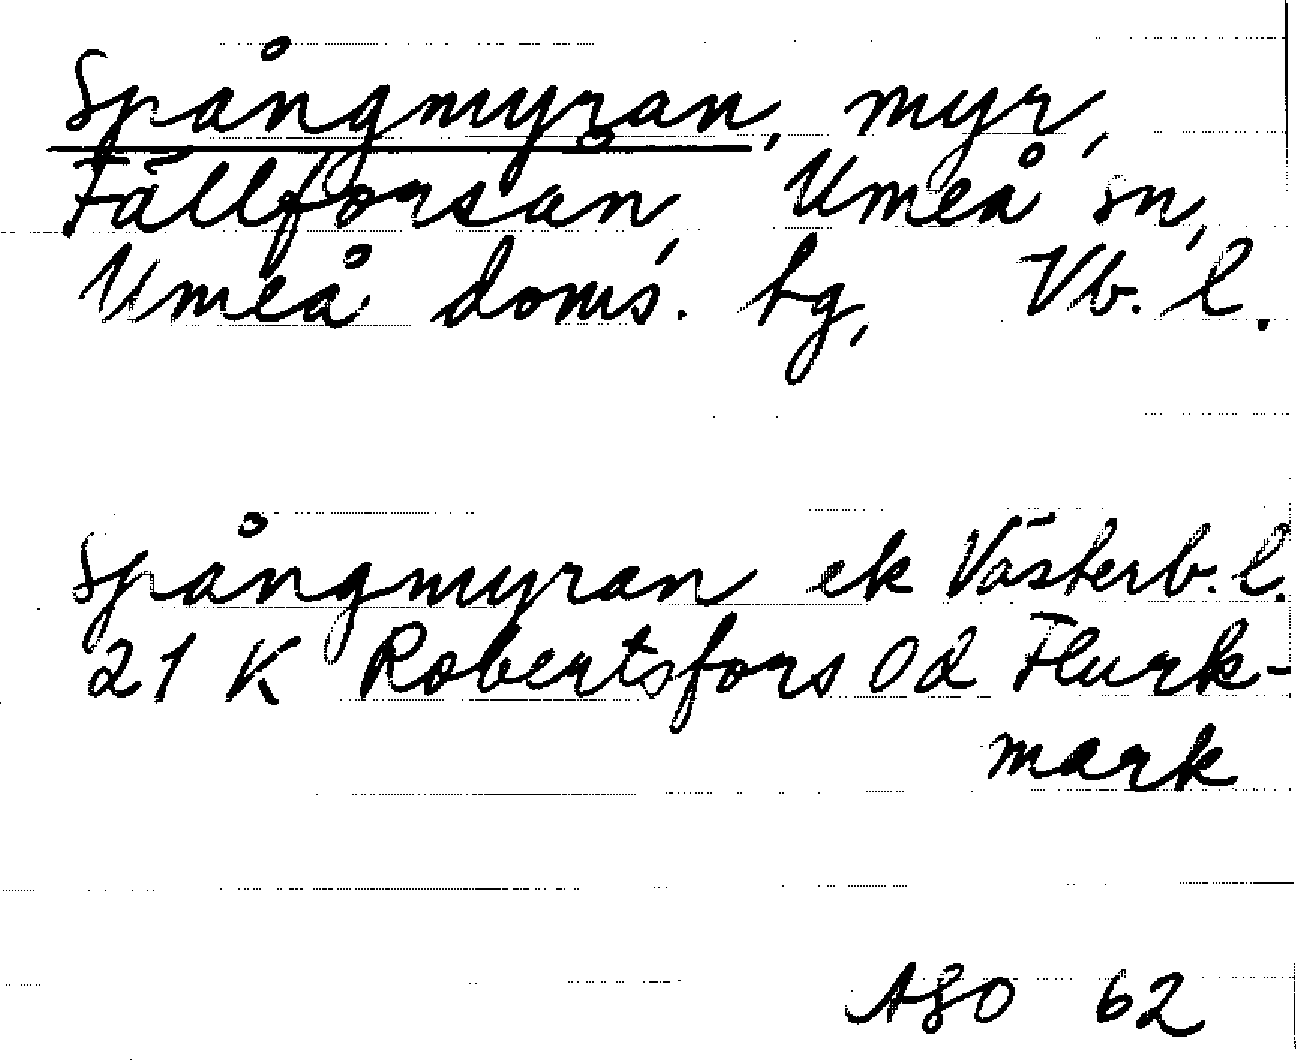 Spångmyran, myr,
Fällforsån, Umeå sn,
Umeå doms. tg, Vb. l.
Spångmyran ek Västerb. l.
21 K Robertsfors 0d Flurk-
mark
ASO 62